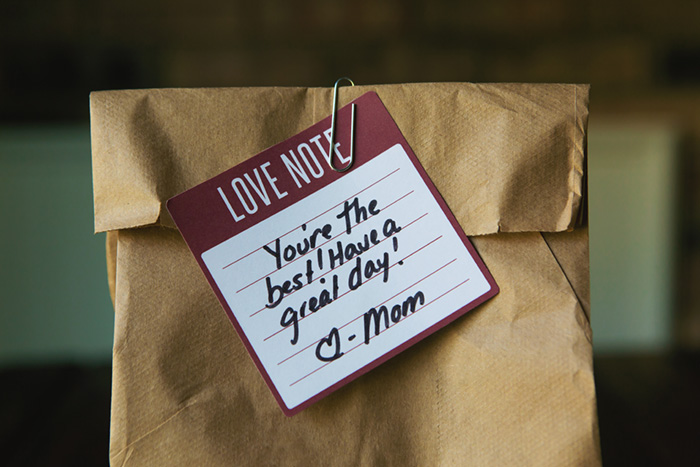 LOVE NOTE
You're the
best! Have a
great day!
♡-Mom